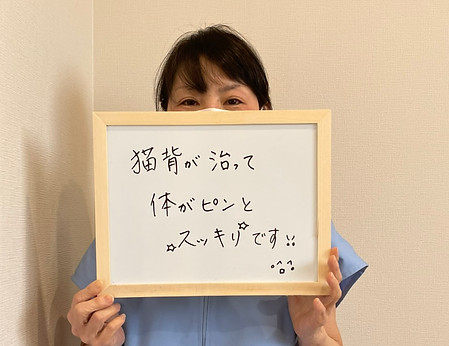 猫背が治って
体がピンと
☆スッキリ☆です!!
°^ロ^°